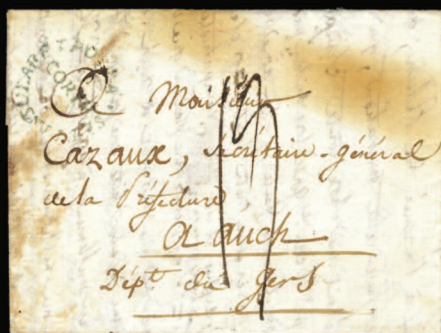 A Monsieur
Cazaux, secrétaire-général
de la Préfecture,
a auch
Dépt du Gers